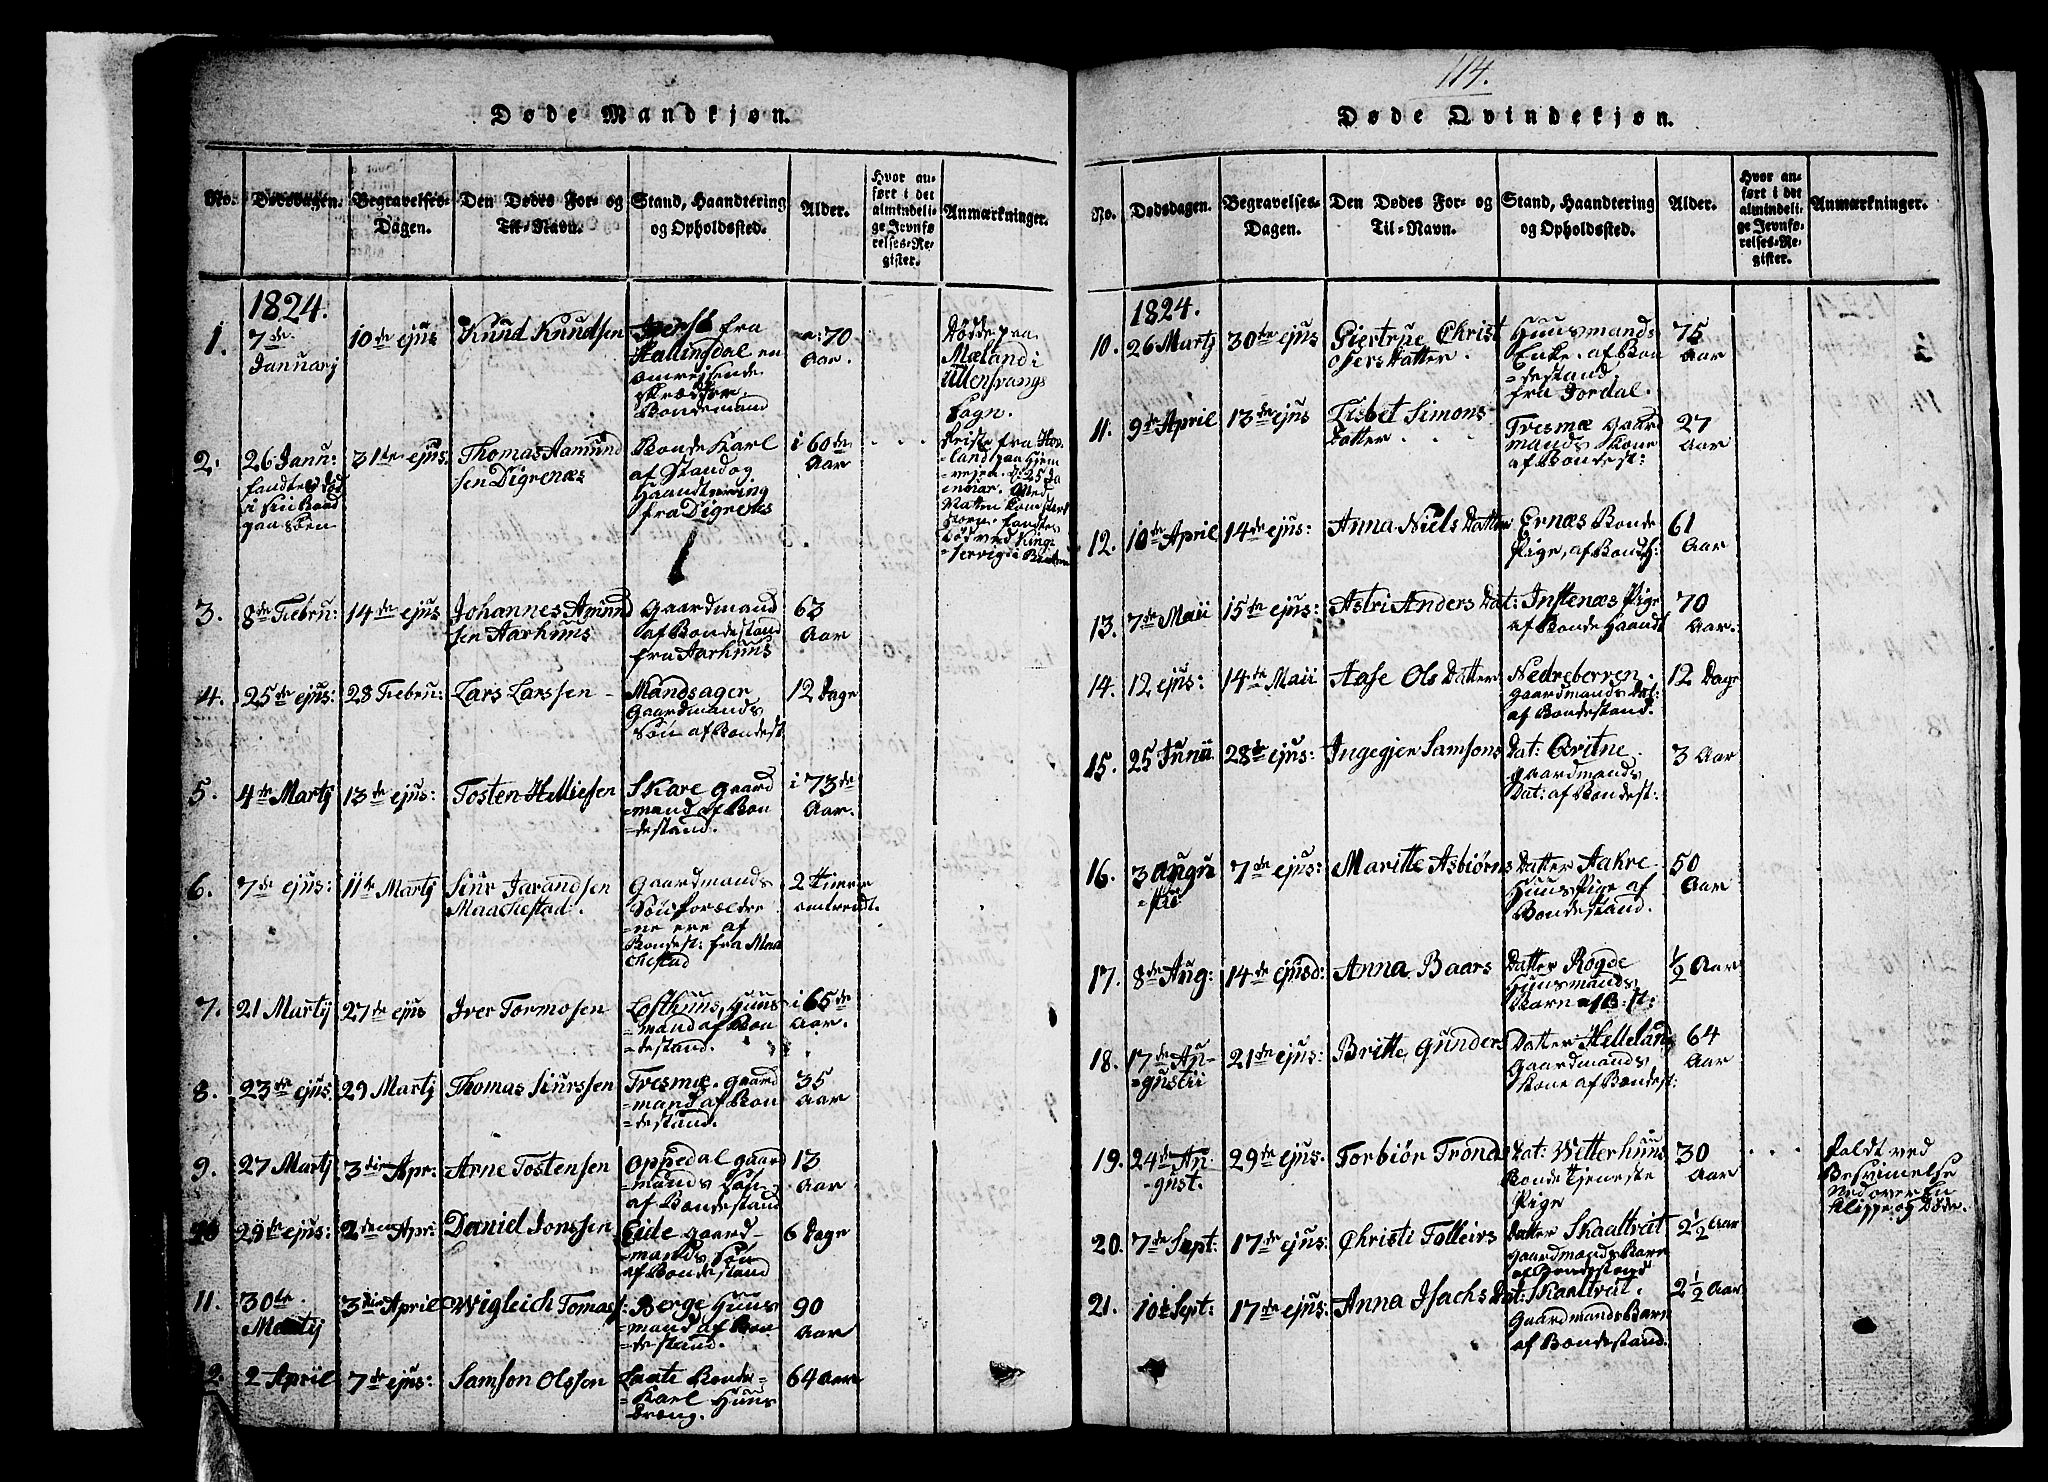 114.
Døde Mandkjøn.
No. Dødsdagen. Begravelses-Dagen. Den Dødes For- og Til-Navn. Stand, Haandtering og Opholdssted. Alder. Hvor anført i det almindelige Jevnførelses-Register. Anmærkninger.
1824.
1. 7de Januarij
10de ejus
Knud Knudsen
fra
Hallingdal en
omreisende
Skrædder
Bondemand
70
Aar.
Dødde paa
Mæland i
Ullensvangs
Sogn.
2. 26 Janu:
fandtes død
i sin Baad
31te ejus:
Thomas Aamund
sen Digrenæs
Bonde Karl
af Stand og
Haandtering
fra Digrenæs
i 60de
Aar
reiste fra Hov
land paa Hjem
vejen. d: 25 Ja
nuar. Med
fandtes
død ved King
servig
3. 8de Febru:
14de ejus
Johannes Amund
sen Aarhuus
Gaardmand
af Bondestand
fra Aarhuus
63
Aar
4. 25de ejus:
28 Febru:
Lars Larssen
Mandsager
Gaardmands
Søn af Bondest
12 Dage
5. 4de Martij
13de ejus:
Tosten Helliesen
Skare Gaard
=mand af Bon
=destand.
i 73de
Aar.
6. 7de ejus:
11te Martij
Siur Jarandsen
Maachestad.
Gaardmands
Søn forældre
=ne ere af
Bondest: fra Maa
chestad
2 Timer
omtrendt.
7. 21 Martij
27de ejus
Iver Tormosen
Lofthuus, Huus
=mand af Bon
=destand.
i 65de
Aar.
8. 23de ejus
29 Martij
Thomas Siurssen
Tresmæ. Gaard
=mand af Bon
=destand.
35
Aar
9. 27 Martij
3die Apr:
Arne Tostensen
Oppedal Gaard
=mands Søn
af Bondestand
13
Aar
10 29de ejus:
2den Apri
Daniel Jonssen
Eide Gaard-
mands Søn
af Bondestand
6 Dage
11. 30te
Martij
3die April
Wigleich Tomass:
Berge Huus
=mand af Bon
=destand.
90
Aar
12. 2 April
7de ejus:
Samson Olssen
Laate Bonde
=Karl Huus
Dreng.
64 Aar
Døde Qvindekjøn.
No. Dødsdagen. Begravelses-Dagen. Den Dødes For- og Til-Navn. Stand, Haandtering og Opholdssted. Alder. Hvor anført i det almindelige Jevnførelses-Register. Anmærkninger.
1824.
10. 26 Martij
30te ejus
Giertrue Christ
ofers Datter.
Huusmands
Enke. af Bon
=destand.
fra Jordal.
75
Aar
11. 9de April
13de ejus
Lisbet Simons
Datter
Tresmæ Gaard
mands Kone
af Bondest:
27
Aar
12. 10de April
14de ejus:
Anna Niels Datter
Ernæs Bonde
Pige, af BondH:
61
Aar
13. 7de Maii
15de ejus:
Astri Anders Dat:
Instenæs Pige
af Bonde Haandt
70
Aar.
14. 12 ejus:
14de Maii
Aase Ols Datter
Nedreberven.
Gaardmands Dat:
af Bondestand.
12 Dage
15. 25 Junii
28de ejus:
Ingegjer Samsons
Dat: Qvitne.
Gaardmands
Dat: af Bondest:
3 Aar
16. 3 Augu
7de ejus:
Maritte Asbiørns
Datter Aakre
Huus Pige af
Bondestand.
50
Aar
17. 8de Aug:
14de ejusd:
Anna Baars
Datter Rogde
Huusmands
Barn af B: st:
½ Aar
18. 17de Au-
=gustii
21de ejus:
Britte Gunders
Datter Helleland
Gaardmands
Kone af Bondest:
64
Aar
19. 24de Au-
=gust.
29de ejus:
Torbiør Tronds
Dat: Wetterhuus
Bonde Tjeneste
Pige
30
Aar
Faldt ved
Besvimelse
Ned over En
Klippe og Døde.
20. 7de Sept:
17de ejus:
Christi Tolleirs
Datter Skaaltvet
Gaardmands Barn
af Bondestand
2½ Aar
21. 10de Sept:
17de ejus:
Anna Isachs
Dat: Skaaltvat.
Gaardmands Barn
af Bondestand.
2½ Aar